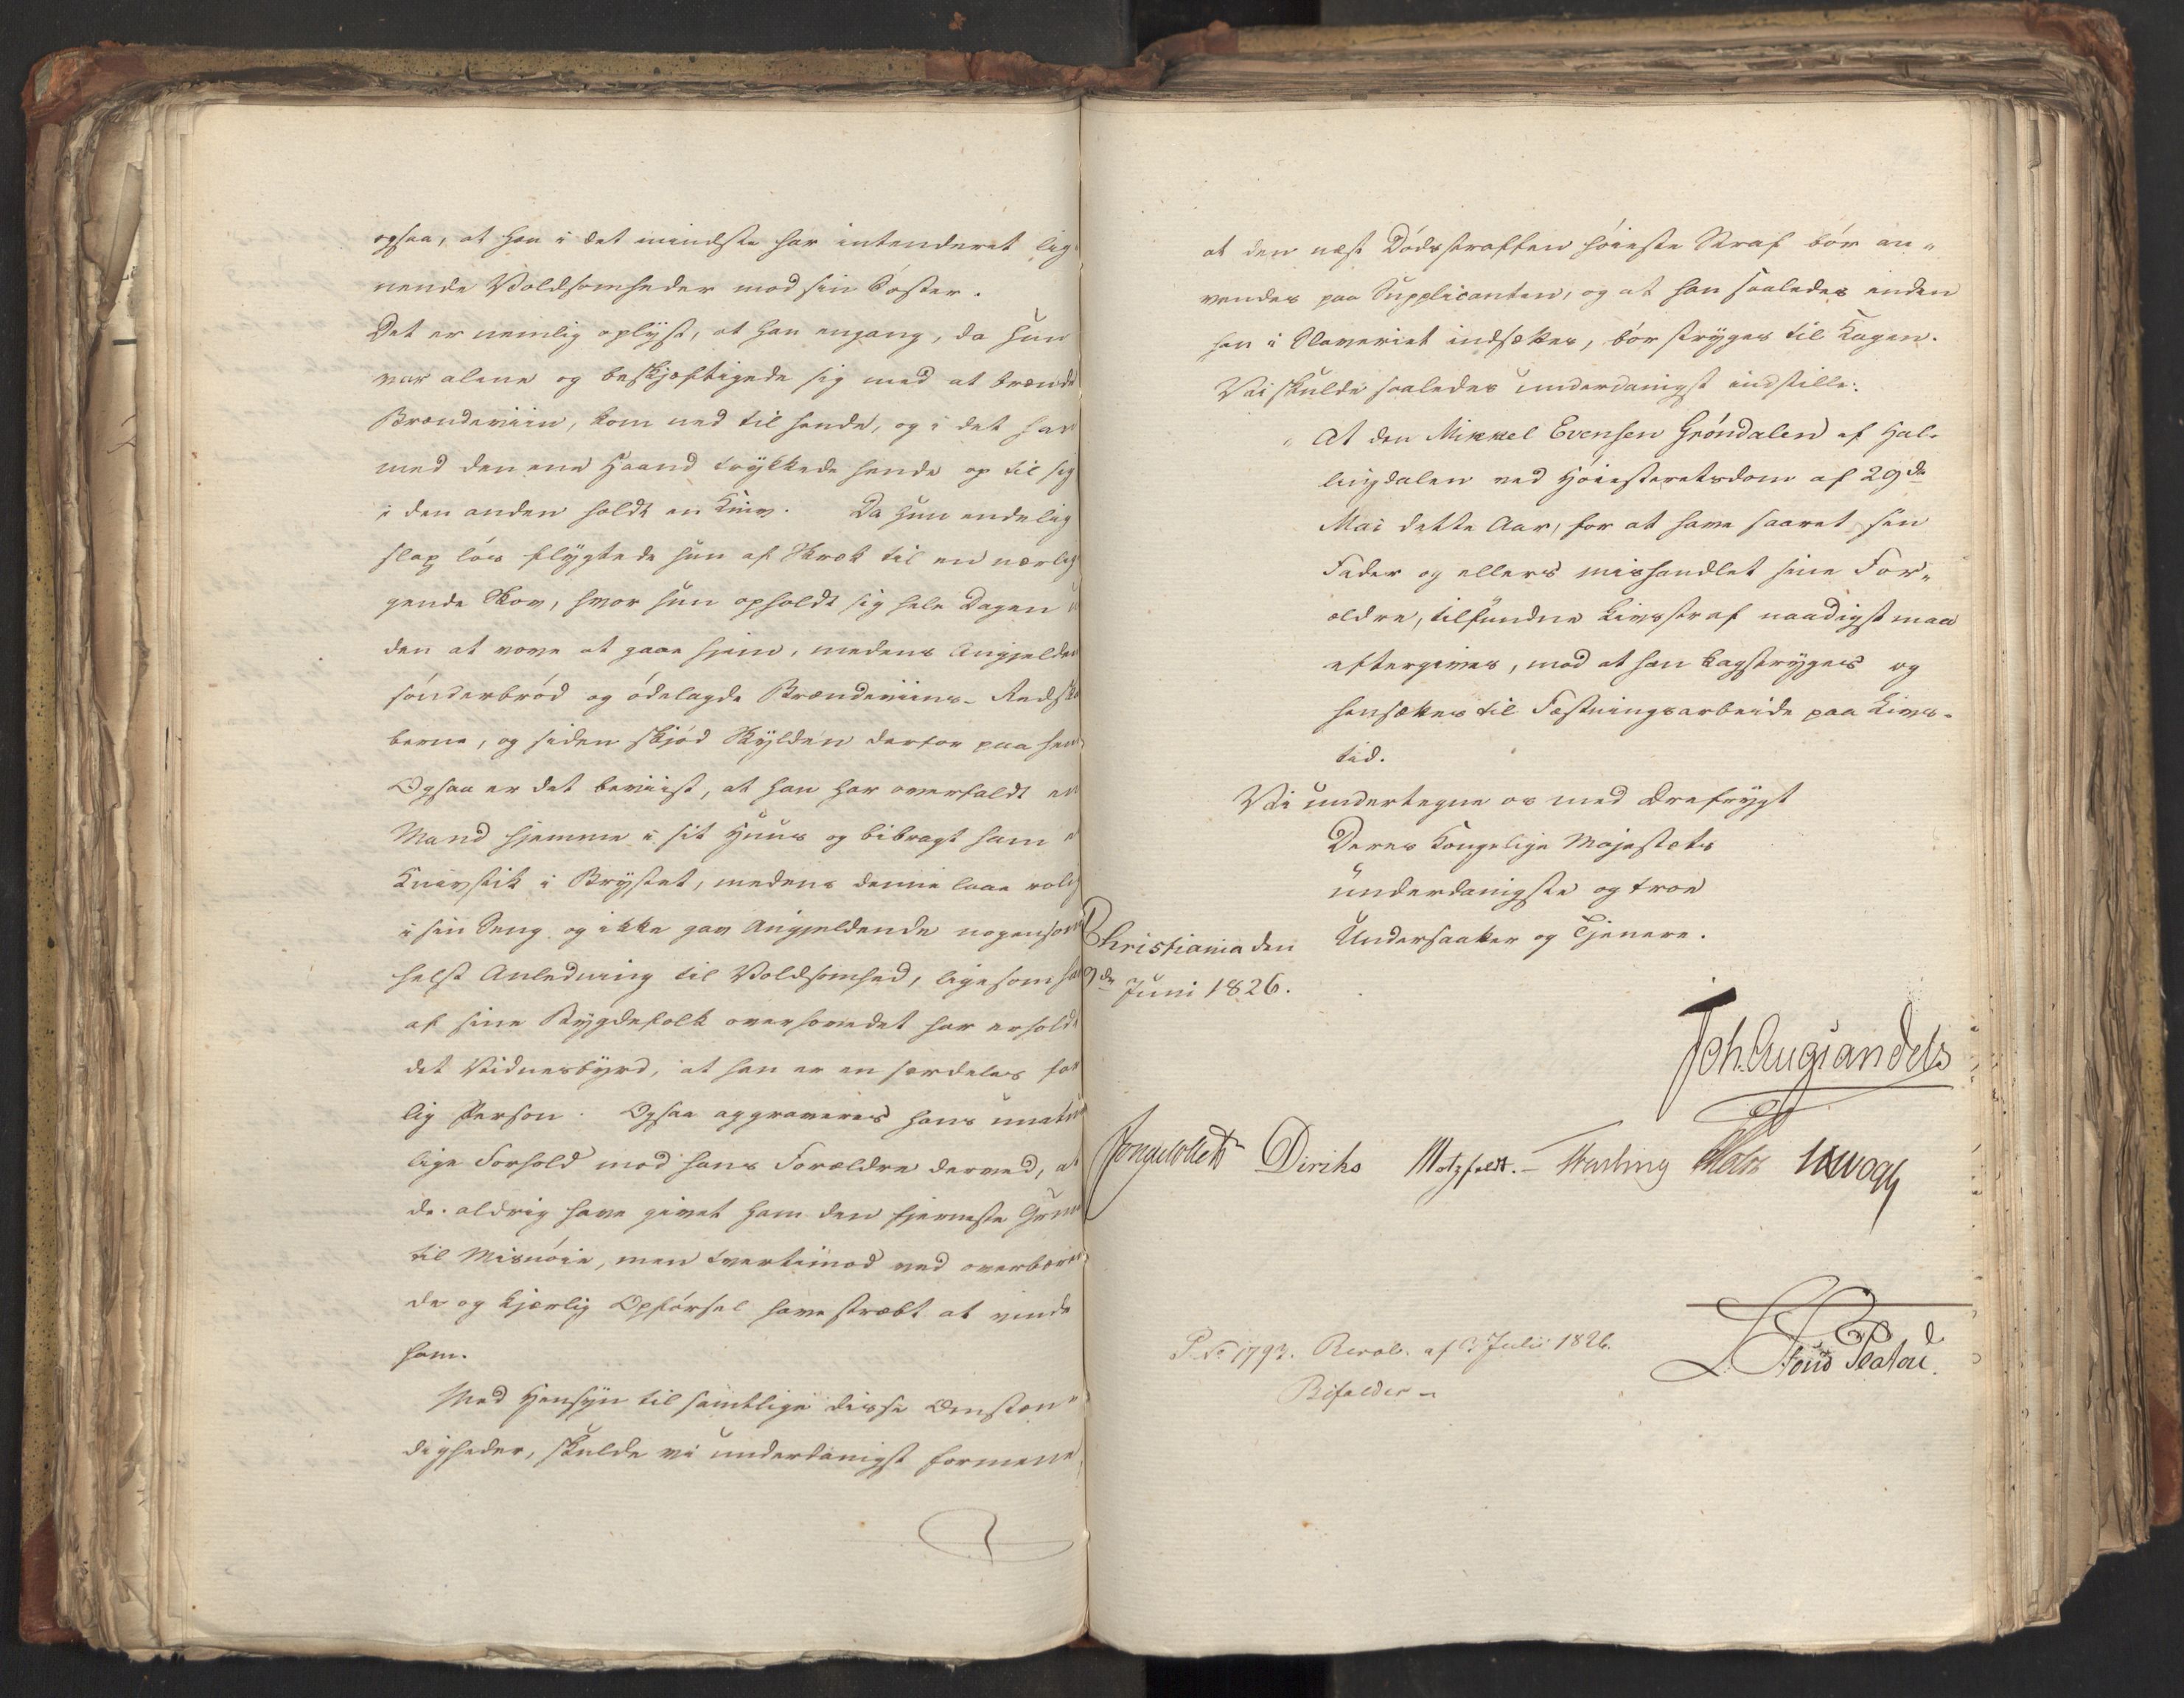 ogsaa, at han i det mindste har intenderet lig-
nende Voldsomheder mod sin Søster.
Det er nemlig oplyst, at han engang, da hun
var alene og beskjæftigede sig med at brænde
Brændeviin, kom ned til hende, og i det han
med den ene Haand trykkede hende op til sig
i den anden holdt en Kniv. Da hun endelig
slap løs flygtede hun af Skræk til en nærlig
gende Skov, hvor hun opholdt sig hele Dagen u
den at vove at gaae hjem, medens Angjelden
sønderbrød og ødelagde Brændeviins-Redska
berne, og siden skjød Skylden derfor paa hen
Ogsaa er det beviist, at han har overfaldt en
Mand hjemme i sit Huus og bibragt ham e
Knivstik i Brystet, medens denne laae rolig
i sin Seng og ikke gav Angjeldende nogensom
helst Anledning til Voldsomhed, ligesom han
af sine Bygdefolk overhovedet har erholdt
det Vidnesbyrd, at han er en særdeles far
lig Person. Ogsaa aggraveres hans unatur
lige Forhold mod hans Forældre derved, at
de aldrig have givet ham den fjerneste Grund
til Misnøie, men tvertimod ved overbæren
de og kjærlig Opførsel have stræbt at vinde
ham.
Med Hensyn til samtlige disse Omstæn-
digheder, skulde vi underdanigst formene
at den næst Dødsstraffen høieste Straf bør an-
vendes paa Supplicanten, og at han saaledes inden
han i Slaveriet indsættes, bør stryges til Kagen.
Vi skulde saaledes underdanigst indstille:
At den Mikkel Evensen Grøndalen af Hal-
lingdalen ved Høiesteretsdom af 29de
Mai dette Aar, for at have saaret sin
Fader og ellers mishandlet sine For-
ældre, tilfundne Livsstraf naadigst maa
eftergives, mod at han kagstryges og
hensættes til Fæstningsarbeide paa Livs-
tid.
Vi undertegne os med Ærefrygt
Deres Kongelige Majestæts
underdanigste og troe
Undersaatter og Tjenere.
Christiania den
9de Juni 1826.
Joh. Aug. Sandels
Jonas Collett Diriks Motzfeldt. Treschow Holst
P. No 1793. Resol. af 3 Julii 1826.
Bifaldes